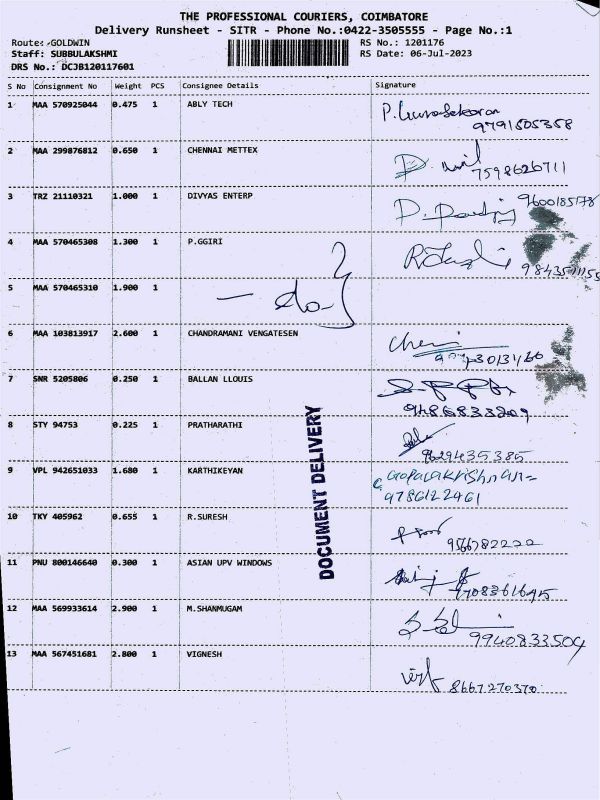 THE PROFESSIONAL COURIERS, COIMBATORE
Delivery Runsheet - SITR - Phone No.:0422-3505555 - Page No.:1
Route: GOLDWIN RS No.: 1201176
Staff: SUBBULAKSHMI RS Date: 06-Jul-2023
DRS No.: DCJB120117601
S No Consignment No Weight PCS Consignee Details Signature
1 MAA 570925044 0.475 1 ABLY TECH P.
9791605358
2 MAA 299876812 0.650 1 CHENNAI METTEX D.
7598626711
3 TRZ 21110321 1.000 1 DIVYAS ENTERP 9600185178
4 MAA 570465308 1.300 1 P.GGIRI
5 MAA 570465310 1.900 1 - do - }
6 MAA 103813917 2.600 1 CHANDRAMANI VENGATESEN
7 SNR 5205806 0.250 1 BALLAN LLOUIS
9486833209
8 STY 94753 0.225 1 PRATHARATHI
9629435385
9 VPL 942651033 1.680 1 KARTHIKEYAN Gopalakrishnan
9786122961
10 TKY 405962 0.655 1 R.SURESH
9566782222
11 PNU 800146640 0.300 1 ASIAN UPV WINDOWS
12 MAA 569933614 2.900 1 M.SHANMUGAM
9940833504
13 MAA 567451681 2.800 1 VIGNESH
8667270370
DOCUMENT DELIVERY